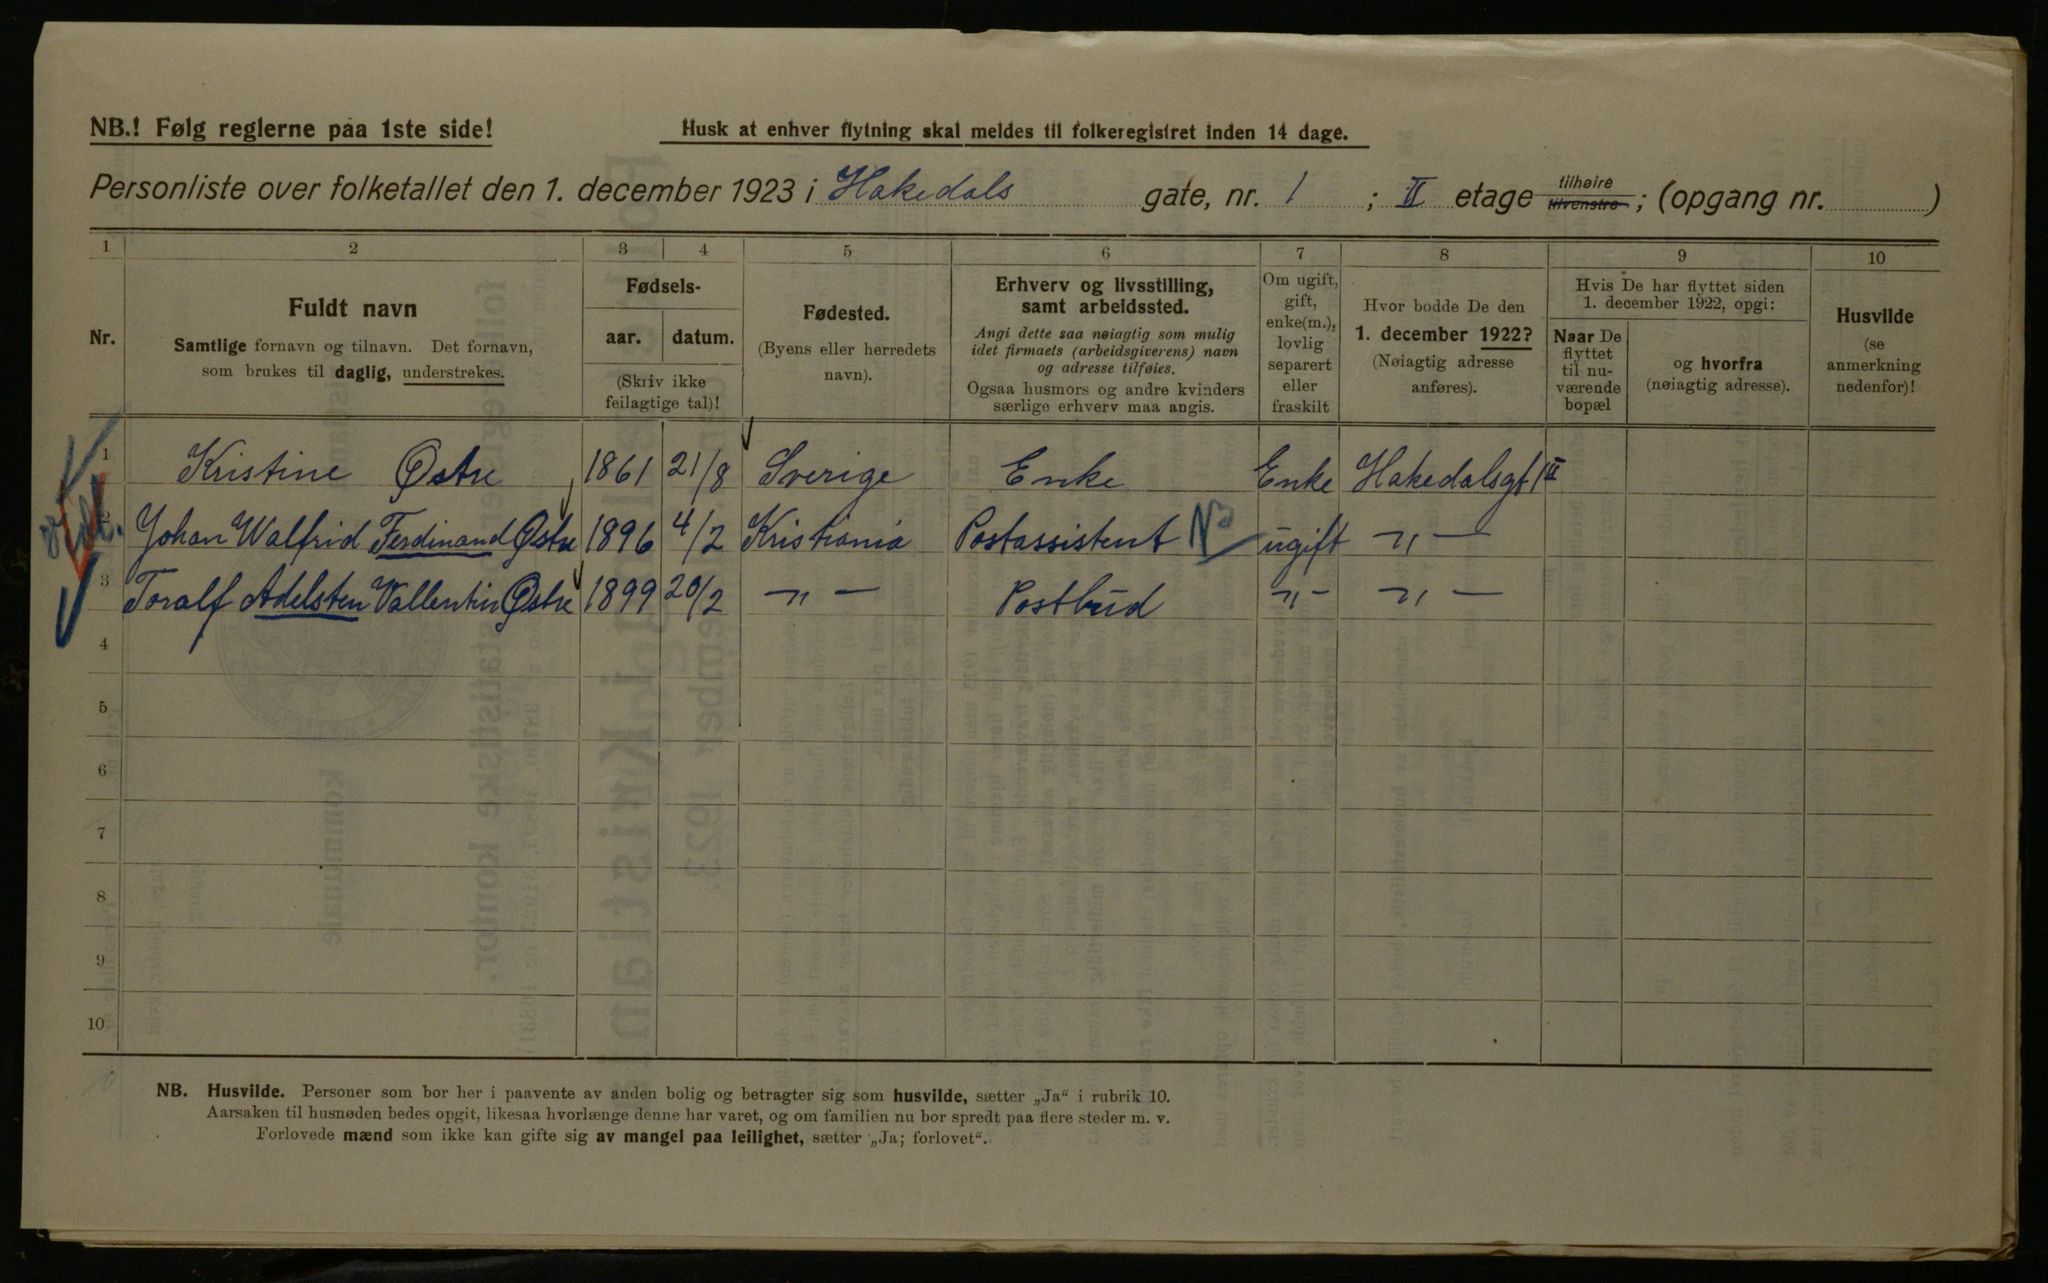 NB.! Følg reglerne paa 1ste side!
Husk at enhver flytning skal meldes til folkeregistret inden 14 dage.
Personliste over folketallet den 1. december 1923 i Hakedals gate, nr. 1 ; II etage tilhøire tilvenstre; (opgang nr. )
1 2 3 4 5 6 7 8 9 10
Nr.
Fuldt navn
Samtlige fornavn og tilnavn. Det fornavn,
som brukes til daglig, understrekes.
Fødsels-
aar. datum.
(Skriv ikke
feilagtige tal)!
Fødested.
(Byens eller herredets
navn).
Erhverv og livsstilling,
samt arbeidssted.
Angi dette saa nøiagtig som mulig
idet firmaets (arbeidsgiverens) navn
og adresse tilføies.
Ogsaa husmors og andre kvinders
særlige erhverv maa angis.
Om ugift,
gift,
enke(m.),
lovlig
separert
eller
fraskilt
Hvor bodde De den
1. december 1922?
(Nøiagtig adresse
anføres).
Hvis De har flyttet siden
1. december 1922, opgi:
Naar De
flyttet
til nu-
værende
bopæl
og hvorfra
(nøiagtig adresse).
Husvilde
(se
anmerkning
nedenfor)!
1 Kristine Østre 1861 21/8 Sverige Enke Enke Hakedalsgt 1 II
2 Johan Walfrid Ferdinand Østre 1896 4/2 Kristiania Postassistent ugift -"-
3 Toralf Adelsten Vallentin Østre 1899 20/2 -"- Postbud -"- -"-
4
5
6
7
8
9
10
NB. Husvilde. Personer som bor her i paavente av anden bolig og betragter sig som husvilde, sætter „Ja“ i rubrik 10.
Aarsaken til husnøden bedes opgit, likesaa hvorlænge denne har varet, og om familien nu bor spredt paa flere steder m. v.
Forlovede mænd som ikke kan gifte sig av mangel paa leilighet, sætter „Ja; forlovet“.